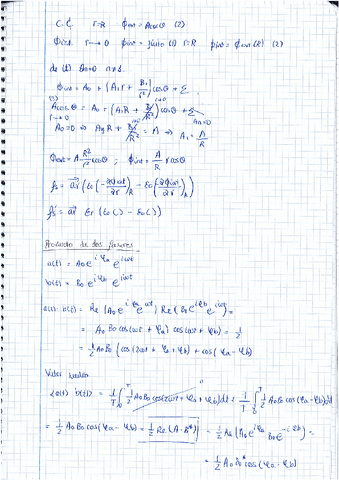 C.C. r=R ϕext = A cosθ (2)
ϕint. r→0 ϕint = finito (1) r=R ϕint = ϕext (R) (2)
de (1) Bn=0 n≠1.
ϕint = A0 + (A1 r + B1/r²) cosθ + Σ
A cosθ = A0 + (A1 R + B1/R²) cosθ + Σ An=0
r→0
A0=0 ⇒ A1 R + B1/R² = A ⇒ A1 = A/R
ϕext = A R²/r² cosθ ; ϕint = A/R r cosθ
Producto de dos fasores
a(t) = A0 e^{iφa} e^{iωt}
b(t) = B0 e^{iφb} e^{iωt}
a(t) · b(t) = Re{A0 e^{iφa} e^{iωt}} Re{B0 e^{iφb} e^{iωt}} =
= A0 B0 cos(ωt + φa) cos(ωt + φb) = 1/2
= 1/2 A0 B0 {cos(2ωt + φa + φb) + cos(φa - φb)
Valor medio
<a(t) b(t)> = 1/T ∫0^T 1/2 A0 B0 cos(2ωt + φa + φb) dt + 1/T ∫0^T 1/2 A0 B0 cos(φa - φb) dt
= 1/2 A0 B0 cos(φa - φb) = 1/2 Re(A · B*) = 1/2 Re{A0 e^{iφa} B0 e^{-iφb}} =
= 1/2 A0 B0* cos(φa - φb)